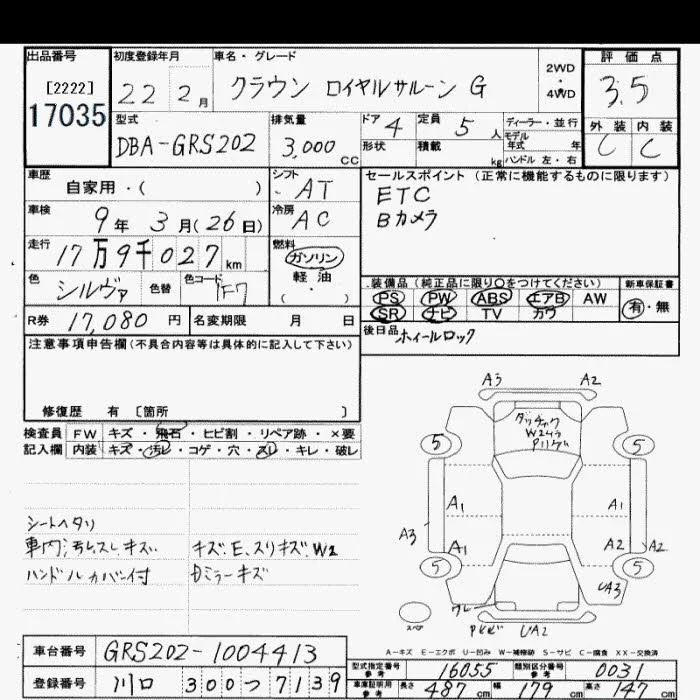 出品番号 初度登録年月 車名・グレード 評価点
[2222]
17035
22 2月 クラウン ロイヤルサルーン G 2WD・4WD 3.5
型式 排気量 ドア 4 定員 5人 ディーラー・並行 外装 内装
DBA-GRS202 3,000cc 形状 積載 kg モデル年式 年 C C
ハンドル 左・右
車歴 シフト セールスポイント(正常に機能するものに限ります)
自家用・( ) AT ETC
車検 9年3月(26日) 冷房 AC Bカメラ
走行 17万9千027km 燃料
ガソリン
軽油
・( )
色 シルヴァ 色替 色コード 1F7
装備品(純正品に限り○をつけてください) 新車保証書
PS PW ABS エアB AW 有・無
SR ナビ TV カワ
R券 17,080円 名変期限 月 日 後日品 ホイールロック
注意事項申告欄(不具合内容等は具体的に記入して下さい)
修復歴 有 〔箇所 〕
検査員 FW キズ・飛石・ヒビ割・リペア跡・×要
記入欄 内装 キズ・汚レ・コゲ・穴・スレ・キレ・破レ
シートヘタリ
車内汚れスレキズ キズ.E.スリキズ.W2
ハンドルカバー付 ミラーキズ
A3 A2
W2
5 5
A1 A1
A3 A1 A2 A2
5 5
UA3
スペア UA2
A-キズ E-エクボ U-凹み W-補修跡 S-サビ C-腐食 XX-交換済
車台番号 GRS202-1004413
型式指定番号 参考 16055 類別区分番号 参考 0031
登録番号 川口 300つ7139
車庫証明用 参考 長さ 487cm 幅 179cm 高さ 147cm